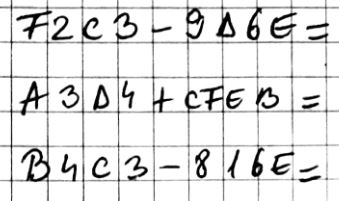 F2C3-9Δ6E=
A3Δ4+CFEB=
B4C3-816E=